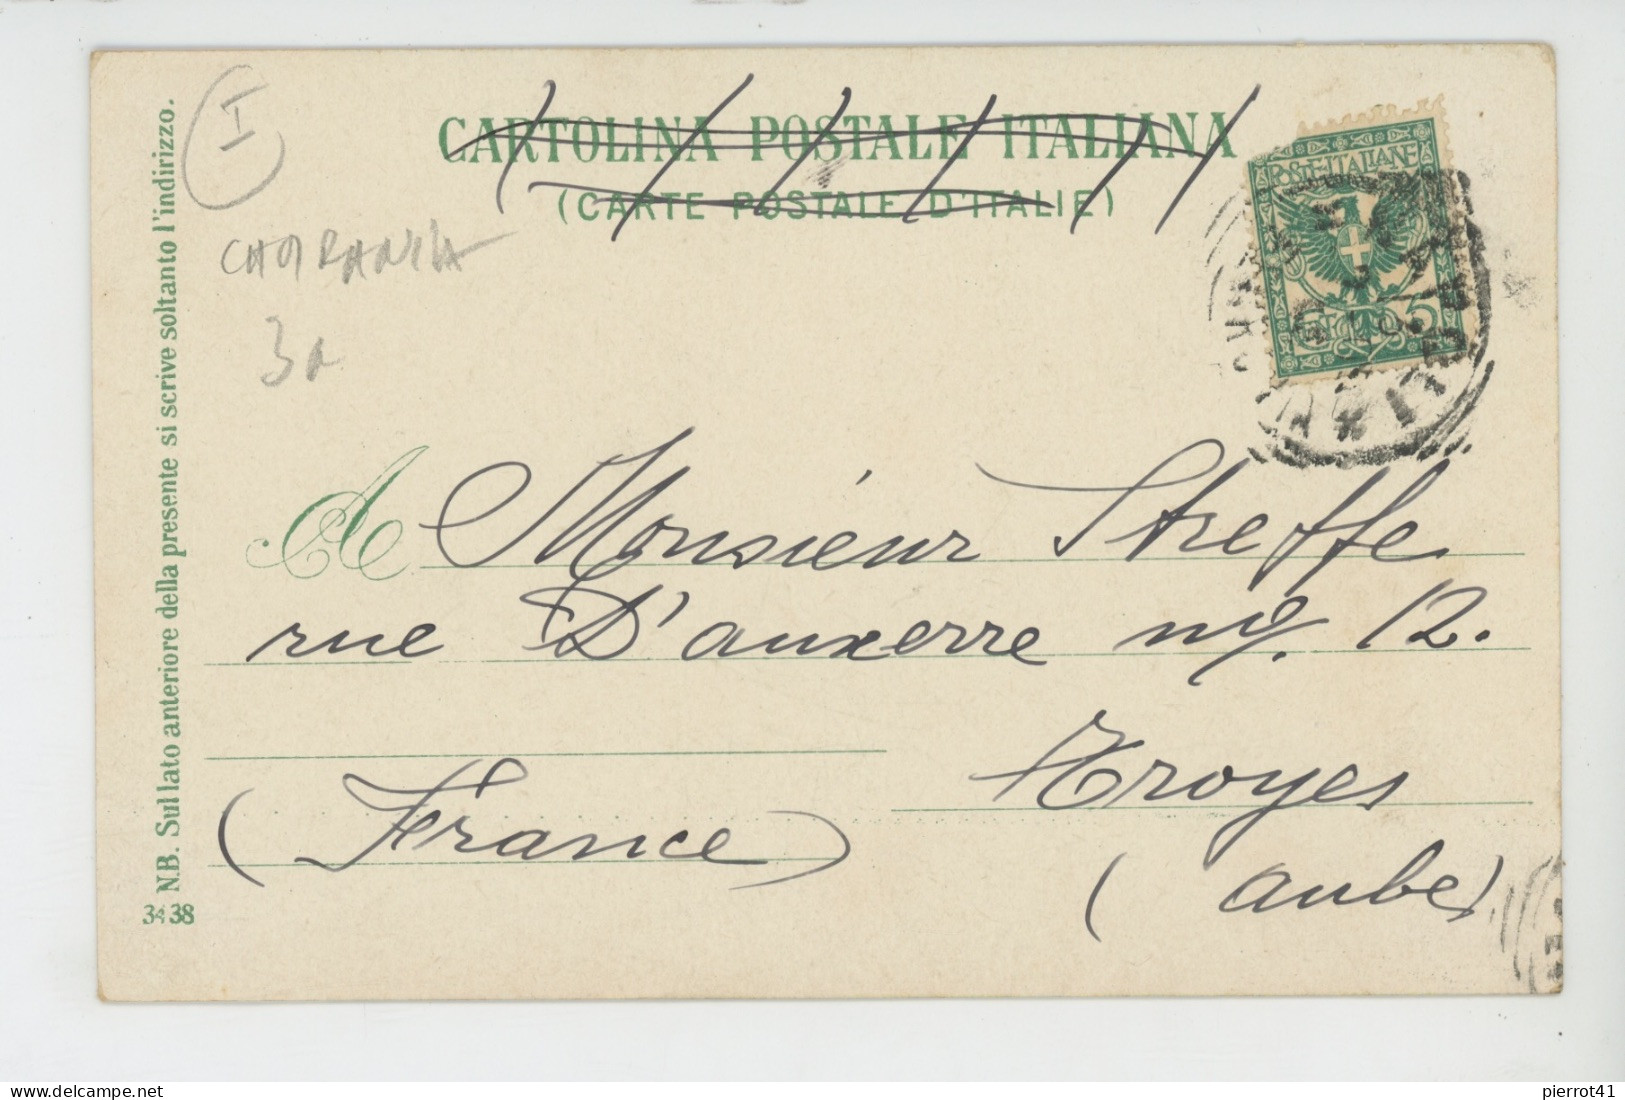 CARTOLINA POSTALE ITALIANA
(CARTE POSTALE D'ITALIE)
POSTE ITALIANE
CT 5
I
3a
N.B. Sul lato anteriore della presente si scrive soltanto l'indirizzo.
3438
A Monsieur Streffe
rue D'auxerre 12.
Troyes
(France)
(aube)
delcampe.net
pierrot41